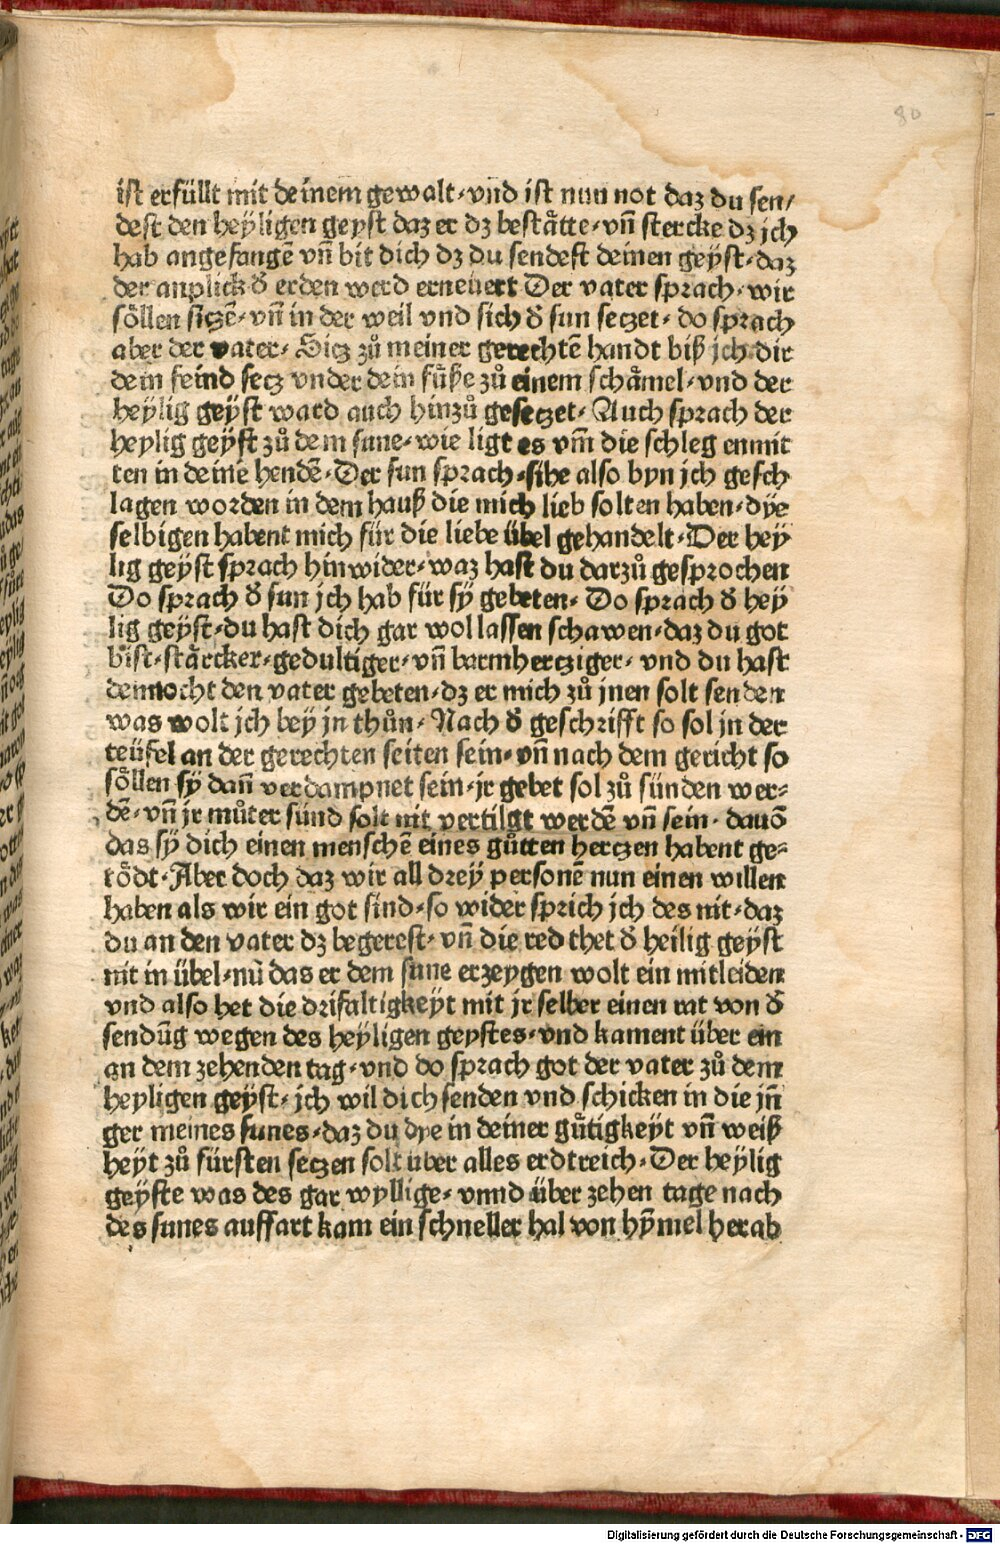 80
ist erfüllt mit deinem gewalt·vnd ist nun not daz du sen/
dest den heyligen geyst daz er dz bestätte·vn̄ stercke dz jch
hab angefangē vn̄ bit dich dz du sendest deinen geyst·daz
der anplick d̄ erden werd erneüert Der vater sprach·wir
söllen siczē·vn̄ in der weil vnd sich d̄ sun seczet·do sprach
aber der vater·Sicz zů meiner gerechtē handt biß jch dir
dein feind secz vnder dein füße zů einem schämel·vnd der
heylig geyst ward auch hinzů geseczet·Auch sprach der
heylig geyst zů dem sune·wie ligt es vm̄ die schleg enmit
ten in deine hendē·Der sun sprach·sihe also byn jch gesch
lagen worden in dem hauß die mich lieb solten haben·dye
selbigen habent mich für die liebe übel gehandelt·Der hey
lig geyst sprach hinwider·waz hast du darzů gesprochen
Do sprach d̄ sun jch hab für sy gebeten·Do sprach d̄ hey
lig geyst·du hast dich gar wol lassen schawen·daz du got
bist·stärcker·gedultiger·vn̄ barmhercziger·vnd du hast
dennocht den vater gebeten·dz er mich zů jnen solt senden
was wolt jch bey jn thůn·Nach d̄ geschrifft so sol jn der
teüfel an der gerechten seiten sein·vn̄ nach dem gericht so
söllen sy dan̄ verdampnet sein·jr gebet sol zů sünden wer⸗
dē·vn̄ jr můter sünd solt nit vertilgt werdē vn̄ sein·dauō
das sy dich einen menschē eines gůtten herczen habent ge⸗
tödt·Aber doch daz wir all drey personē nun einen willen
haben als wir ein got sind·so wider sprich jch des nit·daz
du an den vater dz begerest·vn̄ die red thet d̄ heilig geyst
nit in übel·nū das er dem sune erzeygen wolt ein mitleiden
vnd also het die drifaltigkeyt mit jr selber einen rat von d̄
sendūg wegen des heyligen geystes·vnd kament über ein
an dem zehenden tag·vnd do sprach got der vater zů dem
heyligen geyst·jch wil dich senden vnd schicken in die jn̄
ger meines sunes·daz du dye in deiner gůtigkeyt vn̄ weiß
heyt zů fürsten seczen solt über alles erdtreich·Der heylig
geyste was des gar wyllige·vnnd über zehen tage nach
des sunes auffart kam ein schneller hal von hȳmel herab
Digitalisierung gefördert durch die Deutsche Forschungsgemeinschaft - DFG